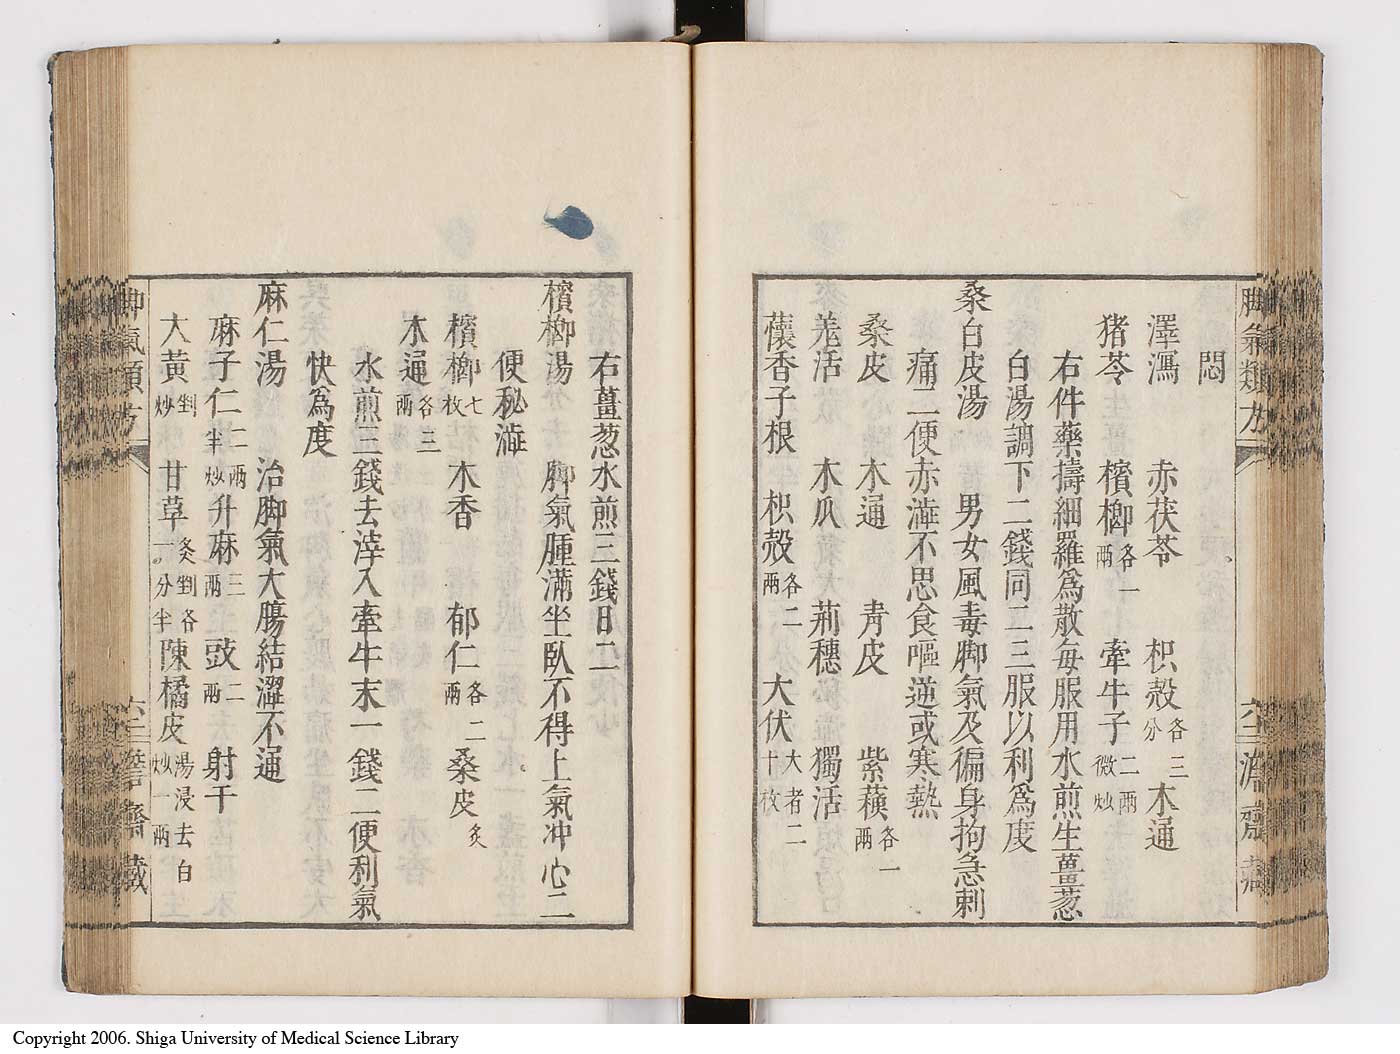 悶
澤瀉 赤茯苓 枳殼各三分 木通
猪苓 檳榔各一兩 牽牛子二兩微炒
右件藥擣細羅為散每服用水煎生薑葱
白湯調下二錢同二三服以利為度
桑白皮湯 男女風毒脚氣及徧身拘急刺
痛二便赤澁不思食嘔逆或寒熱
桑皮 木通 青皮 紫蘓各一兩
羌活 木瓜 荊穗 獨活
蘹香子根 枳殼各二兩 大伏大者二十枚
右薑葱水煎三錢日二
檳榔湯 脚氣腫滿坐臥不得上氣冲心二
便秘澁
檳榔七枚 木香 郁仁各二兩 桑皮炙
木通各三兩
水煎三錢去滓入牽牛末一錢二便利氣
快為度
麻仁湯 治脚氣大腸結澀不通
麻子仁二兩半炒 升麻三兩 豉二兩 射干
大黄剉炒 甘草炙剉各一分半 陳橘皮湯浸去白炒一兩
脚氣類方
脚氣類方
澹齋藏
Copyright 2006. Shiga University of Medical Science Library